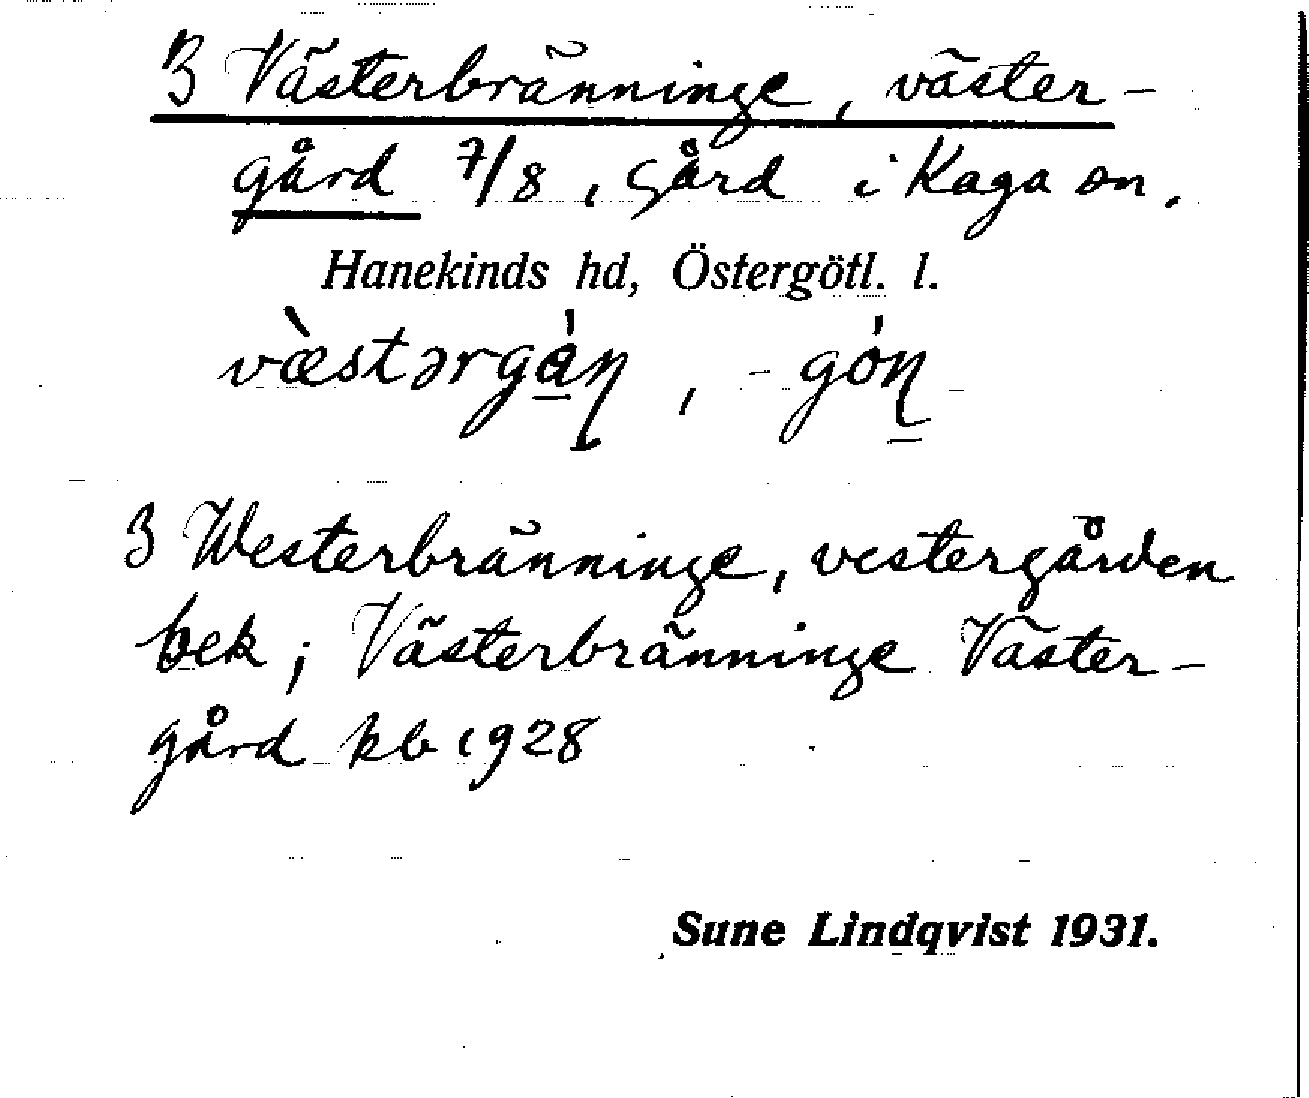 3 Västerbränninge, väster-
gård 7/8, Gård i Kaga sn.
Hanekinds hd, Östergötl. l.
væ̀stərgȧ̀ṇ, -gȯṇ
3 Westerbränninge, vestergården
bek; Västerbränninge Väster-
gård kb 1928
Sune Lindqvist 1931.